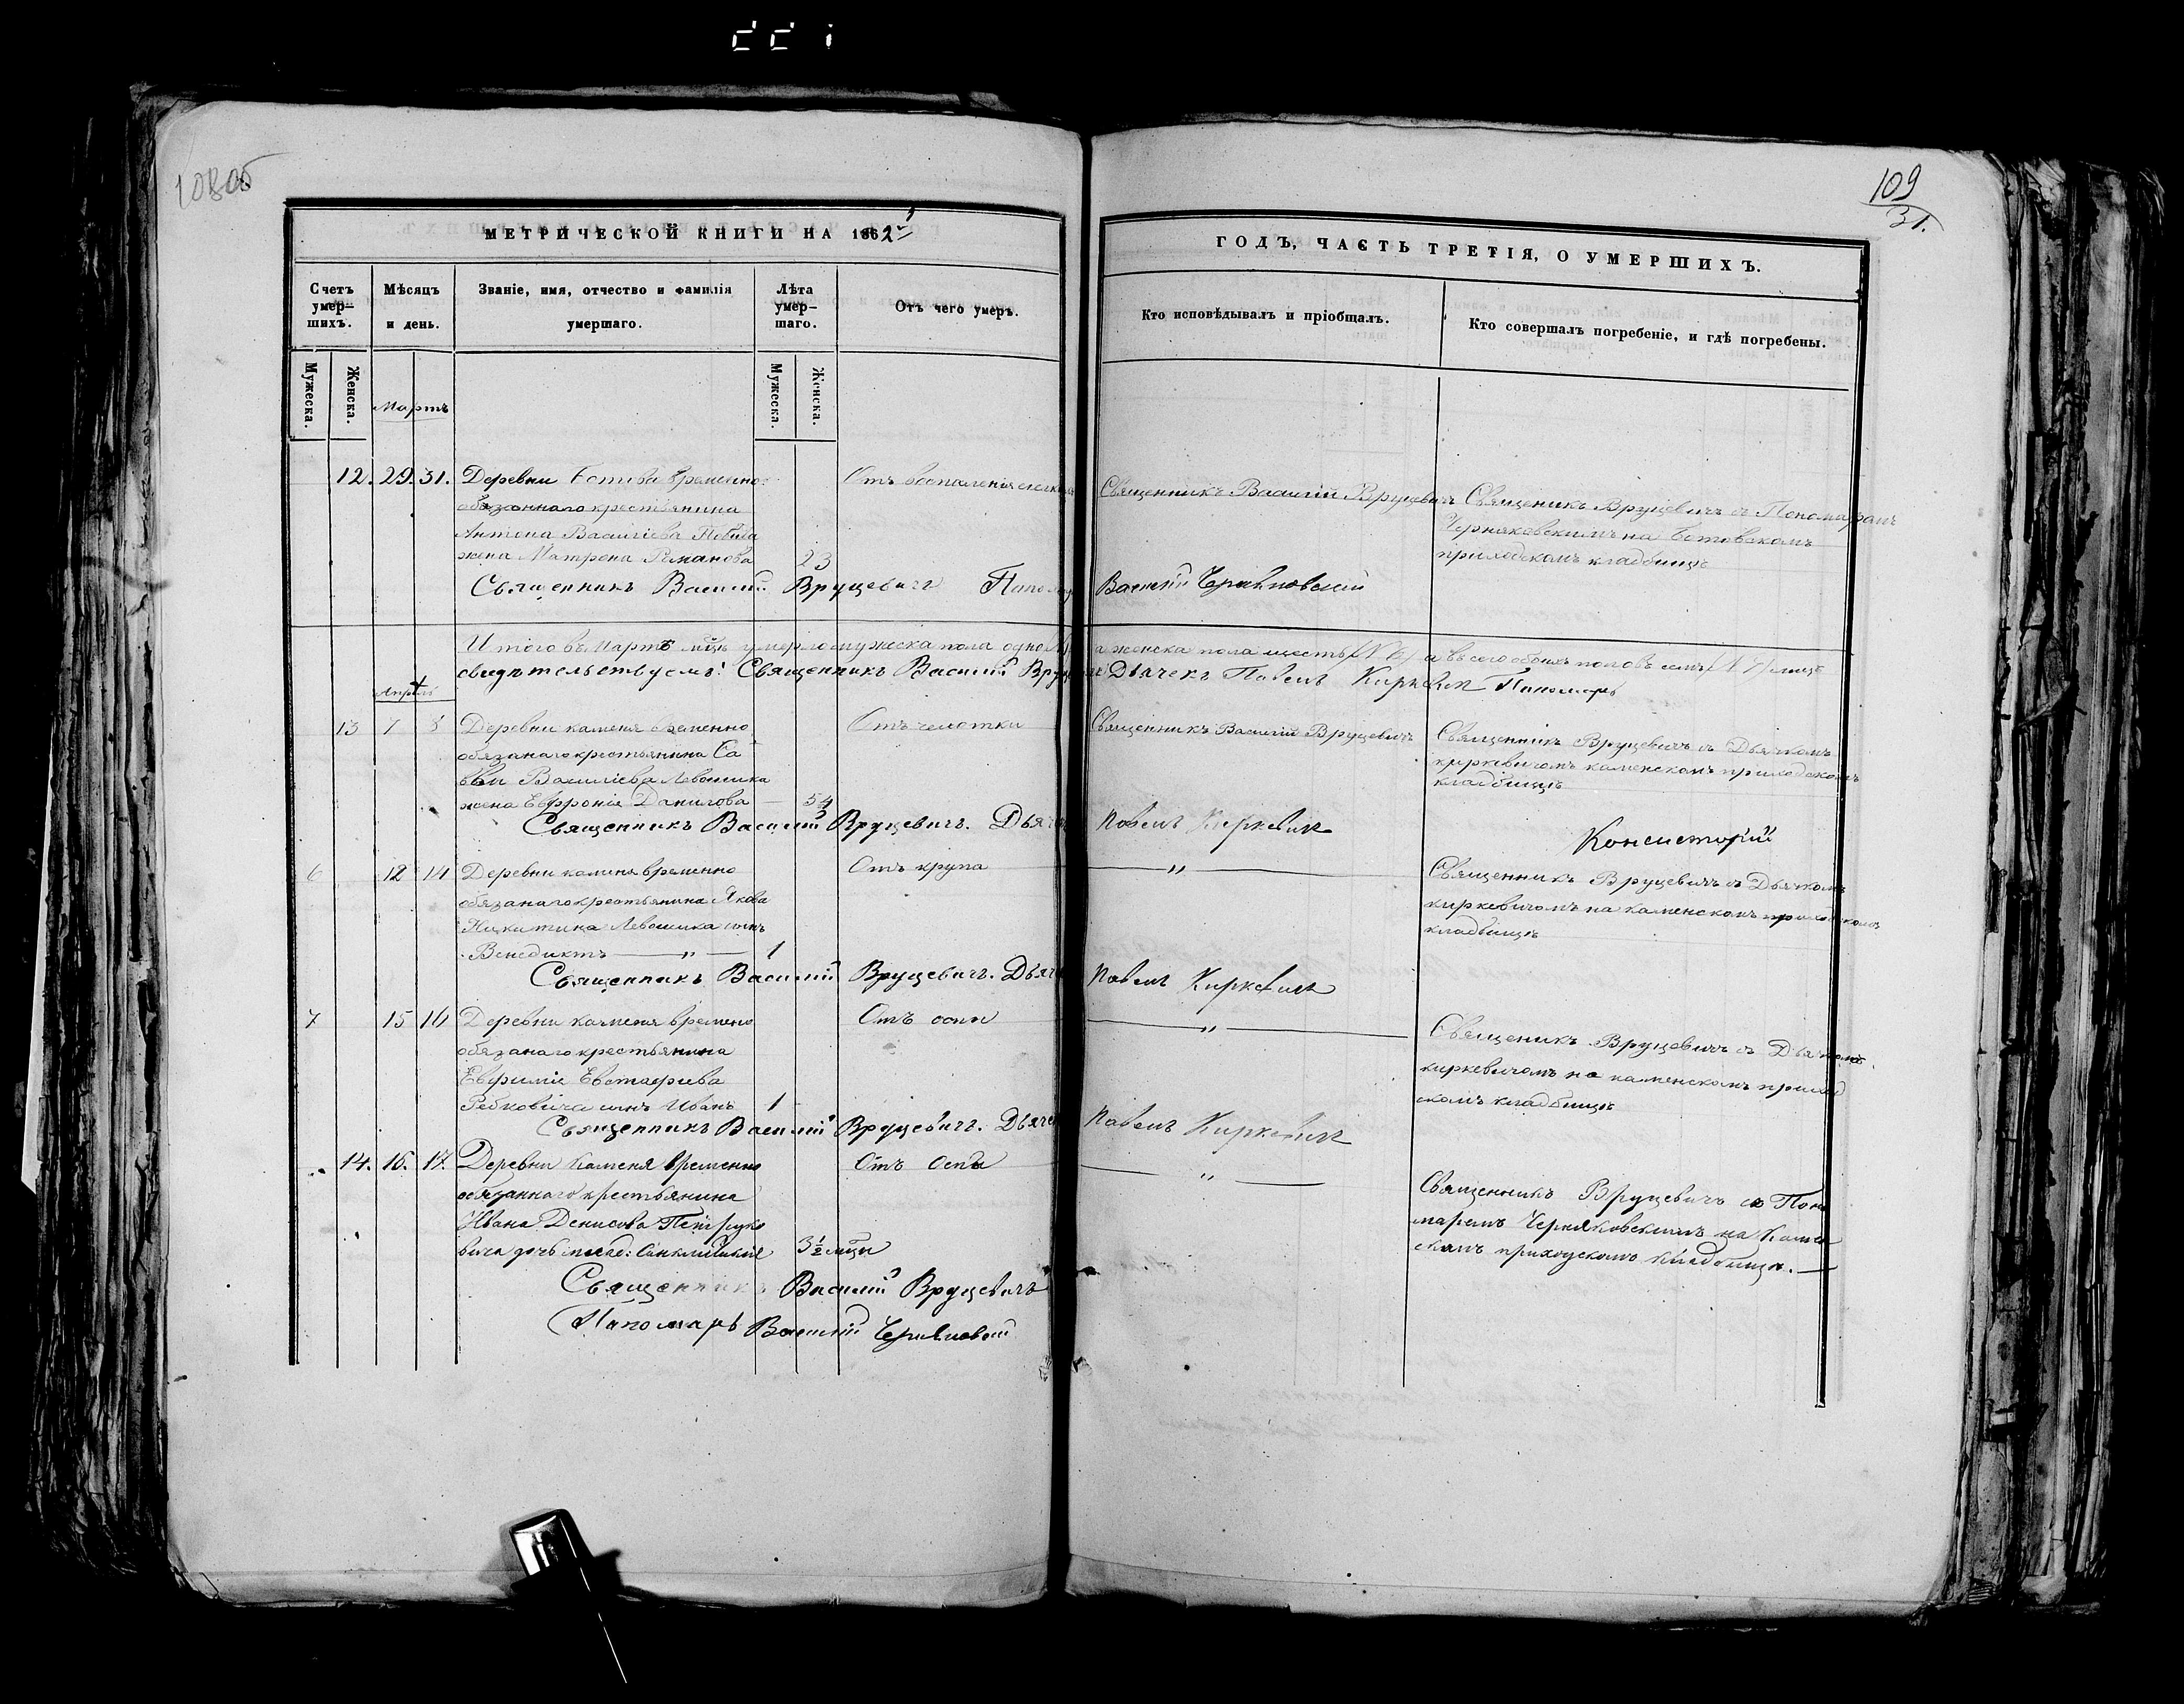 108об
109
31.
МЕТРИЧЕСКОЙ КНИГИ НА 1862й
ГОДЪ, ЧАСТЬ ТРЕТІЯ, О УМЕРШИХЪ.
Счетъ умер-шихъ.
Мѣсяцъ и день.
Званіе, имя, отчество и фамилія умершаго.
Лѣта умер-шаго.
Отъ чего умеръ.
Кто исповѣдывалъ и пріобщалъ.
Кто совершалъ погребеніе, и гдѣ погребены.
Мужеска.
Женска.
Мужеска.
Женска.
Мартъ
12. 29. 31. Деревни временно-
обязаннаго крестьянина
Антона Васильева
жена Матрена Романова 23
Отъ воспаленія
Священникъ Василій Вруцевичъ
Священикъ Вруцевичъ съ Пономаремъ
Черняковскимъ на Ботовскомъ
приходскомъ кладбищѣ
Священникъ Василий Вруцевичъ Пономарь Василій Черняковскій
Итого въ Мартѣ мцѣ умерло мужеска пола одно а женска пола шесть (N 6) а всего обоихъ половъ семь (N 7) лицъ
свидѣтельствуемъ: Священникъ Василий Вруцевичъ Дьячекъ Павелъ Киркевичъ Пономарь
Апрѣль
13 7 Деревни каменя временно
обязанаго крестьянина Са
ввы Василіева Левошика
жена Евфронія Данилова — 54
Отъ чехотки
Священникъ Василій Вруцевичъ
Священникъ Вруцевичъ съ Дьячкомъ
киркевичомъ каменскомъ приходскомъ
кладбищѣ
Священникъ Василий Вруцевичъ. Дьячекъ Павелъ Киркевичъ
Консисторіи
6 12 14 Деревни каменя временно
обязанаго крестьянина Якова
Никитина Левошика сынъ
Венедиктъ — „ — 1
Отъ крупа
— „ —
Священникъ Вруцевичъ съ Дьячкомъ
киркевичомъ на каменскомъ приходскомъ
кладбищѣ
Священникъ Василий Вруцевичъ. Дьячекъ Павелъ Киркевичъ
7 15 16 Деревни каменя времено
обязанаго крестьянина
Евфимія Евстафиева
Ребковича сынъ Иванъ 1
Отъ оспы
— „ —
Священикъ Вруцевичъ съ Дьячкомъ
киркевичомъ на каменскомъ приход
скомъ кладбищѣ
Священникъ Василий Вруцевичъ. Дьячекъ Павелъ Киркевичъ
14. 16. 17. Деревни Каменя временно
обязаннаго крестьянина
Ивана Денисова Петруко
вича дочь млад: 3½ мцы
Отъ Оспы
— „ —
Священникъ Вруцевичъ съ Поно
маремъ Черняковскимъ на Камен
скомъ приходскомъ кладбищѣ. —
Священникъ Василий Вруцевичъ
Пономарь Василій Черняковский